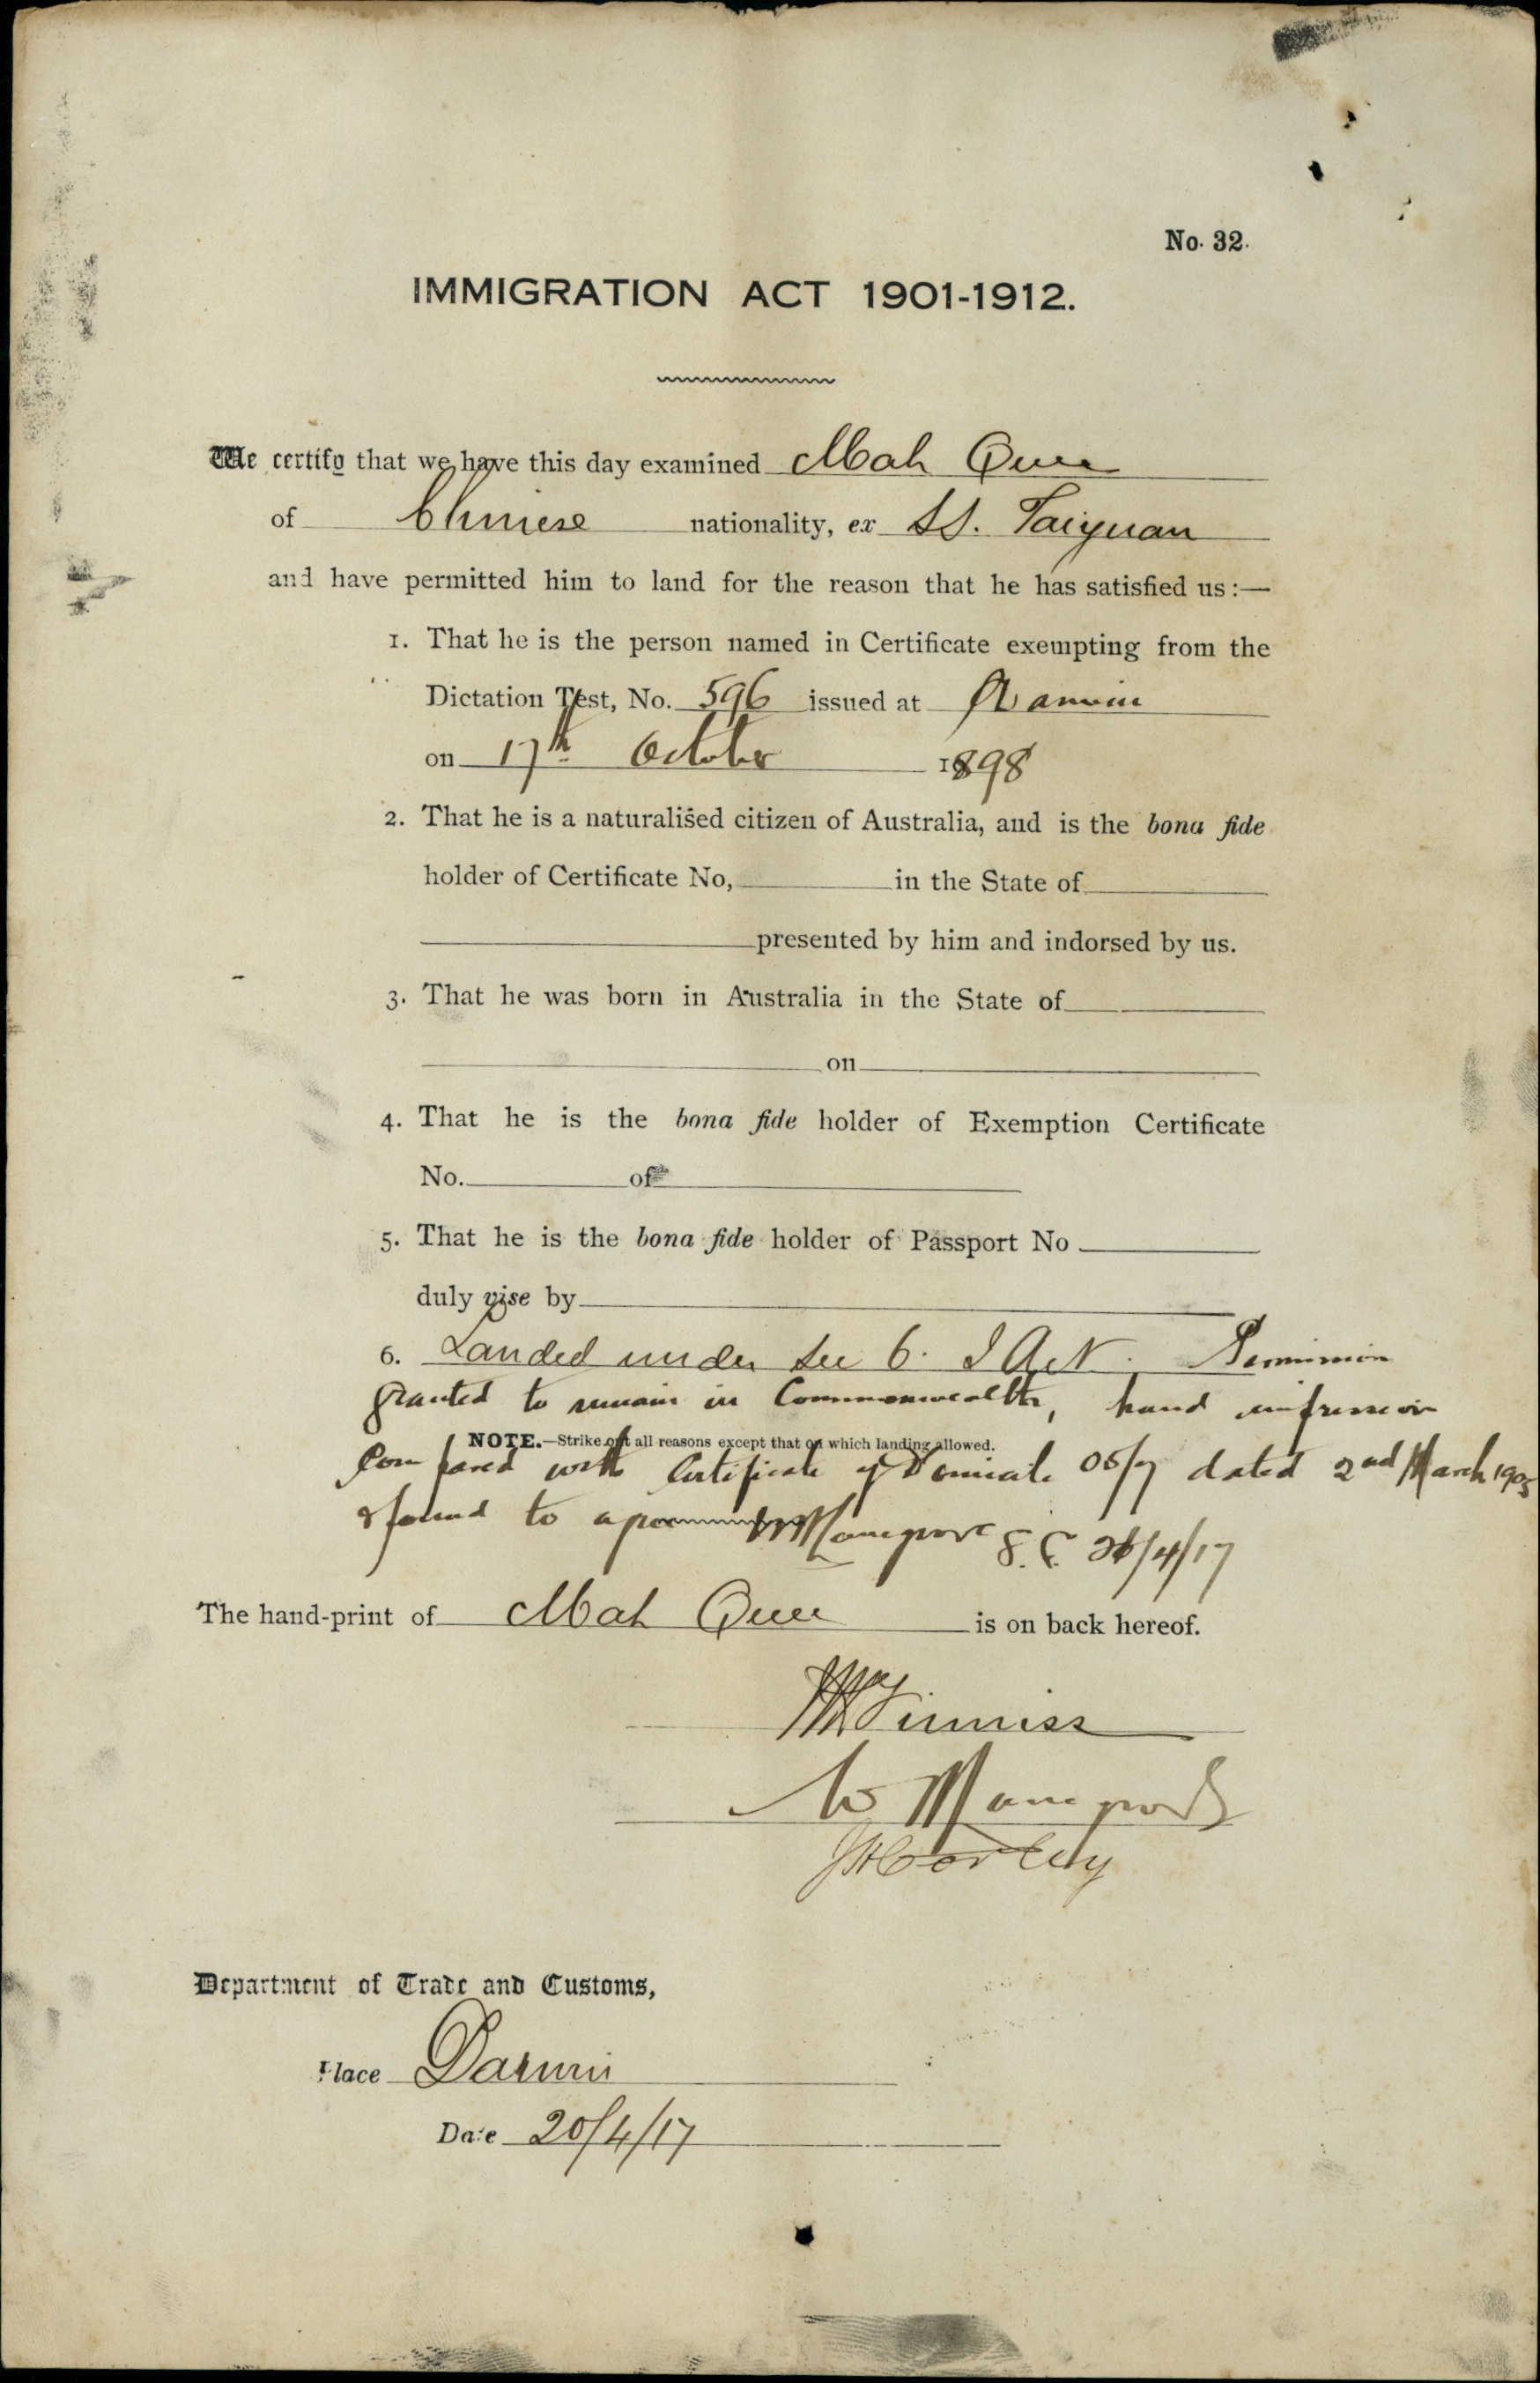 No. 32.
IMMIGRATION ACT 1901-1912.
We certify that we have this day examined Mah Quee
of Chinese nationality, ex S.S. Taiyuan
and have permitted him to land for the reason that he has satisfied us:—
1. That he is the person named in Certificate exempting from the
Dictation Test, No. 596 issued at Darwin
on 17th October 1898
2. That he is a naturalised citizen of Australia, and is the bona fide
holder of Certificate No, in the State of
presented by him and indorsed by us.
3. That he was born in Australia in the State of
on
4. That he is the bona fide holder of Exemption Certificate
No. of
5. That he is the bona fide holder of Passport No
duly vise by
6. Landed under Sec 6. I Act. Permission
granted to remain in Commonwealth, hand impression
NOTE.—Strike out all reasons except that on which landing allowed.
Compared with Certificate of Domicile 05/7 dated 2nd March 1905
& found to 26/4/17
The hand-print of Mah Quee is on back hereof.
Finniss
W
Department of Trade and Customs,
Place Darwin
Date 20/4/17